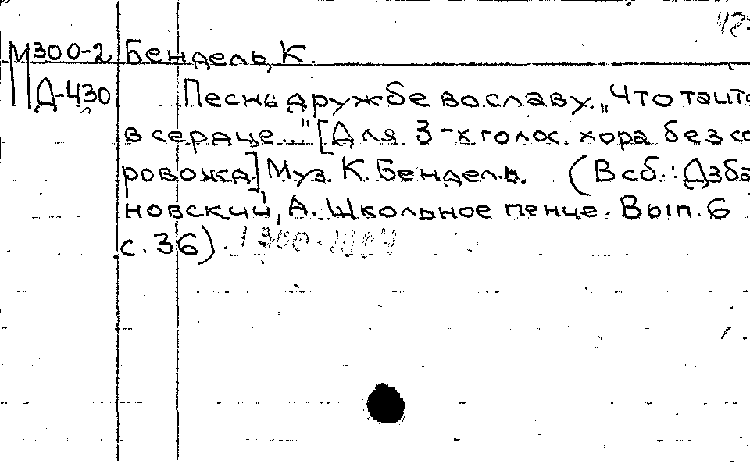 М300-2 Бендель, К.
Д-430 Песнь дружбе во славу. „Что таит
в сердце..." [Для 3-х голос. хора без со
ровожд.] Муз. К. Бендель. (В сб.: Дзба
новский, А. Школьное пение. Вып. 6
с. 36).